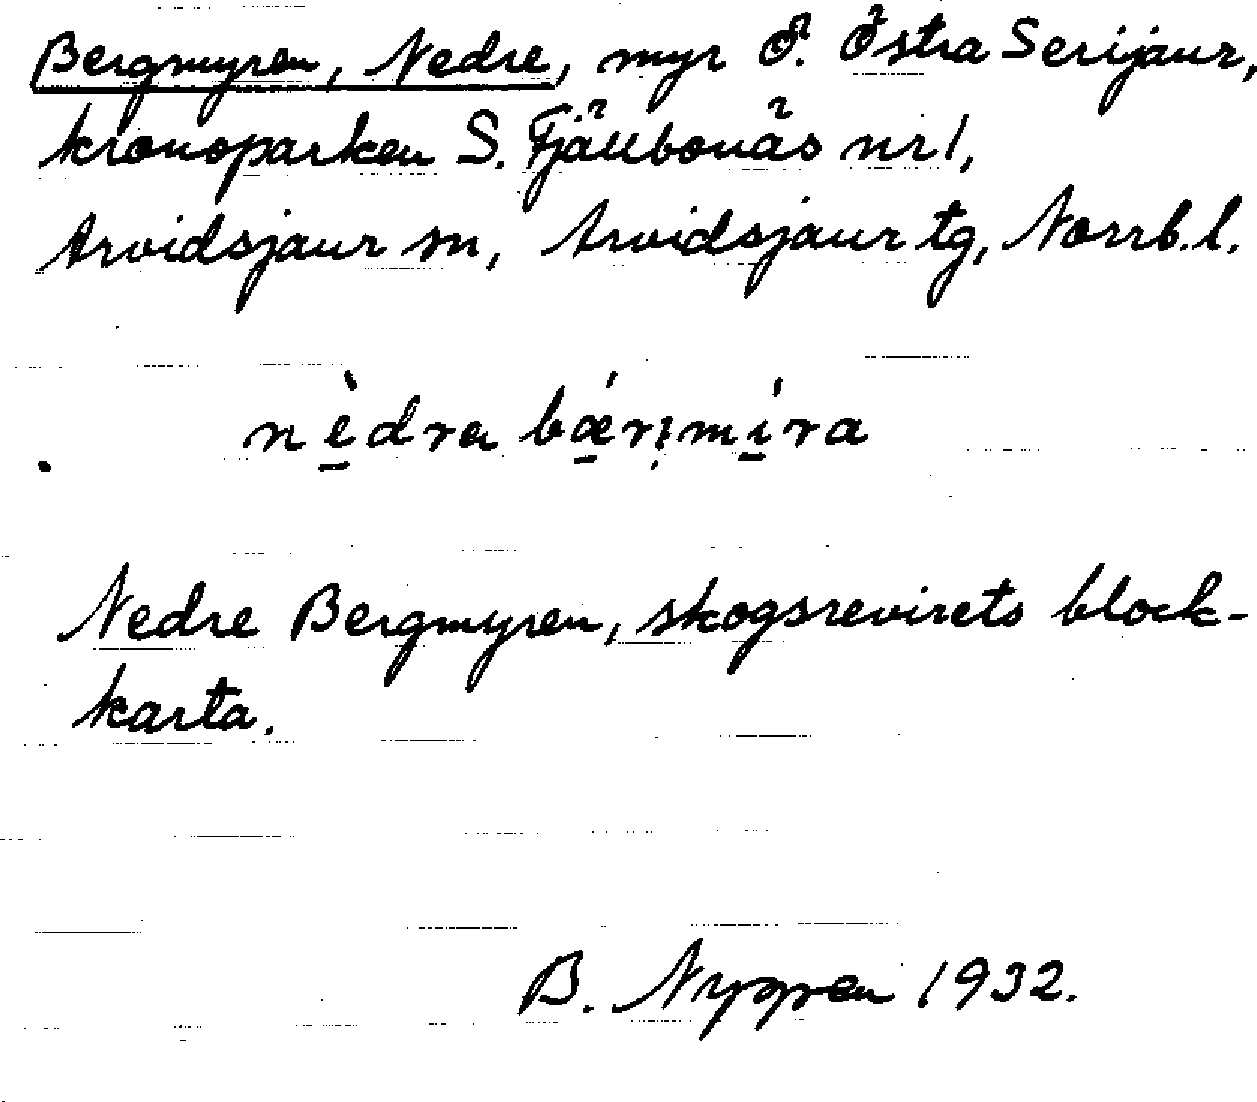 Bergmyren, Nedre, myr Ö. Östra Serijaur,
kronoparken S. Fjällbonäs nr 1,
Arvidsjaur sn, Arvidsjaur tg, Norrb.l.
nèdra bǽri̩míra
Nedre Bergmyren, skogsrevirets block-
karta.
B. Nygren 1932.